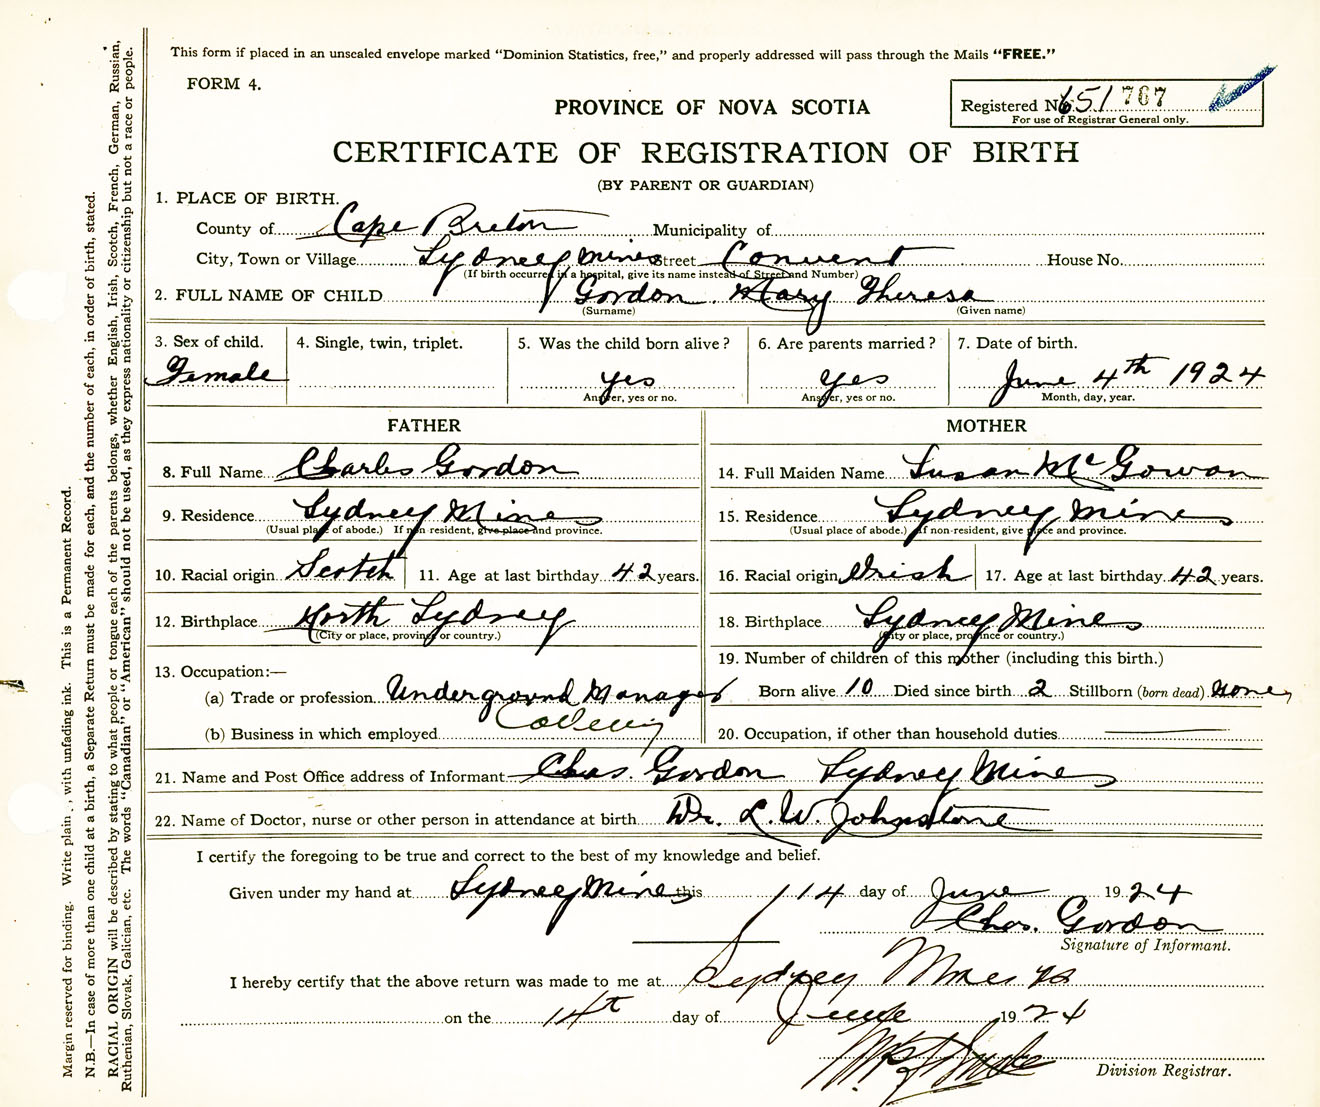 This form if placed in an unsealed envelope marked "Dominion Statistics, free," and properly addressed will pass through the Mails "FREE."
FORM 4.
Registered No. 651 767
For use of Registrar General only.
PROVINCE OF NOVA SCOTIA
CERTIFICATE OF REGISTRATION OF BIRTH
(BY PARENT OR GUARDIAN)
1. PLACE OF BIRTH.
County of Cape Breton Municipality of
City, Town or Village Sydney Mines Street Convent House No.
(If birth occurred in a hospital, give its name instead of Street and Number)
2. FULL NAME OF CHILD Gordon Mary Theresa
(Surname) (Given name)
3. Sex of child. 4. Single, twin, triplet. 5. Was the child born alive? 6. Are parents married? 7. Date of birth.
Female yes yes June 4th 1924
Answer, yes or no. Answer, yes or no. Month, day, year.
FATHER MOTHER
8. Full Name Charles Gordon 14. Full Maiden Name Susan McGowan
9. Residence Sydney Mines 15. Residence Sydney Mines
(Usual place of abode.) If non-resident, give place and province. (Usual place of abode.) If non-resident, give place and province.
10. Racial origin Scotch 11. Age at last birthday 42 years. 16. Racial origin Irish 17. Age at last birthday 42 years.
12. Birthplace North Sydney 18. Birthplace Sydney Mines
(City or place, province or country.) (City or place, province or country.)
13. Occupation:— 19. Number of children of this mother (including this birth.)
(a) Trade or profession Underground Manager Born alive 10 Died since birth 2 Stillborn (born dead) none
(b) Business in which employed Colliery 20. Occupation, if other than household duties
21. Name and Post Office address of Informant Chas. Gordon Sydney Mines
22. Name of Doctor, nurse or other person in attendance at birth Dr. L. W. Johnstone
I certify the foregoing to be true and correct to the best of my knowledge and belief.
Given under my hand at Sydney Mines this 14 day of June 1924
Chas. Gordon
Signature of Informant.
I hereby certify that the above return was made to me at Sydney Mines NS
on the 14th day of June 1924
Division Registrar.
Margin reserved for binding. Write plain , with unfading ink. This is a Permanent Record.
N.B.—In case of more than one child at a birth, a Separate Return must be made for each, and the number of each, in order of birth, stated.
RACIAL ORIGIN will be described by stating to what people or tongue each of the parents belongs, whether English, Irish, Scotch, French, German, Russian,
Ruthenian, Slovak, Galician, etc. The words "Canadian" or "American" should not be used, as they express nationality or citizenship but not a race or people.